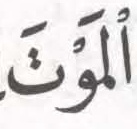 الْمَوْتَ